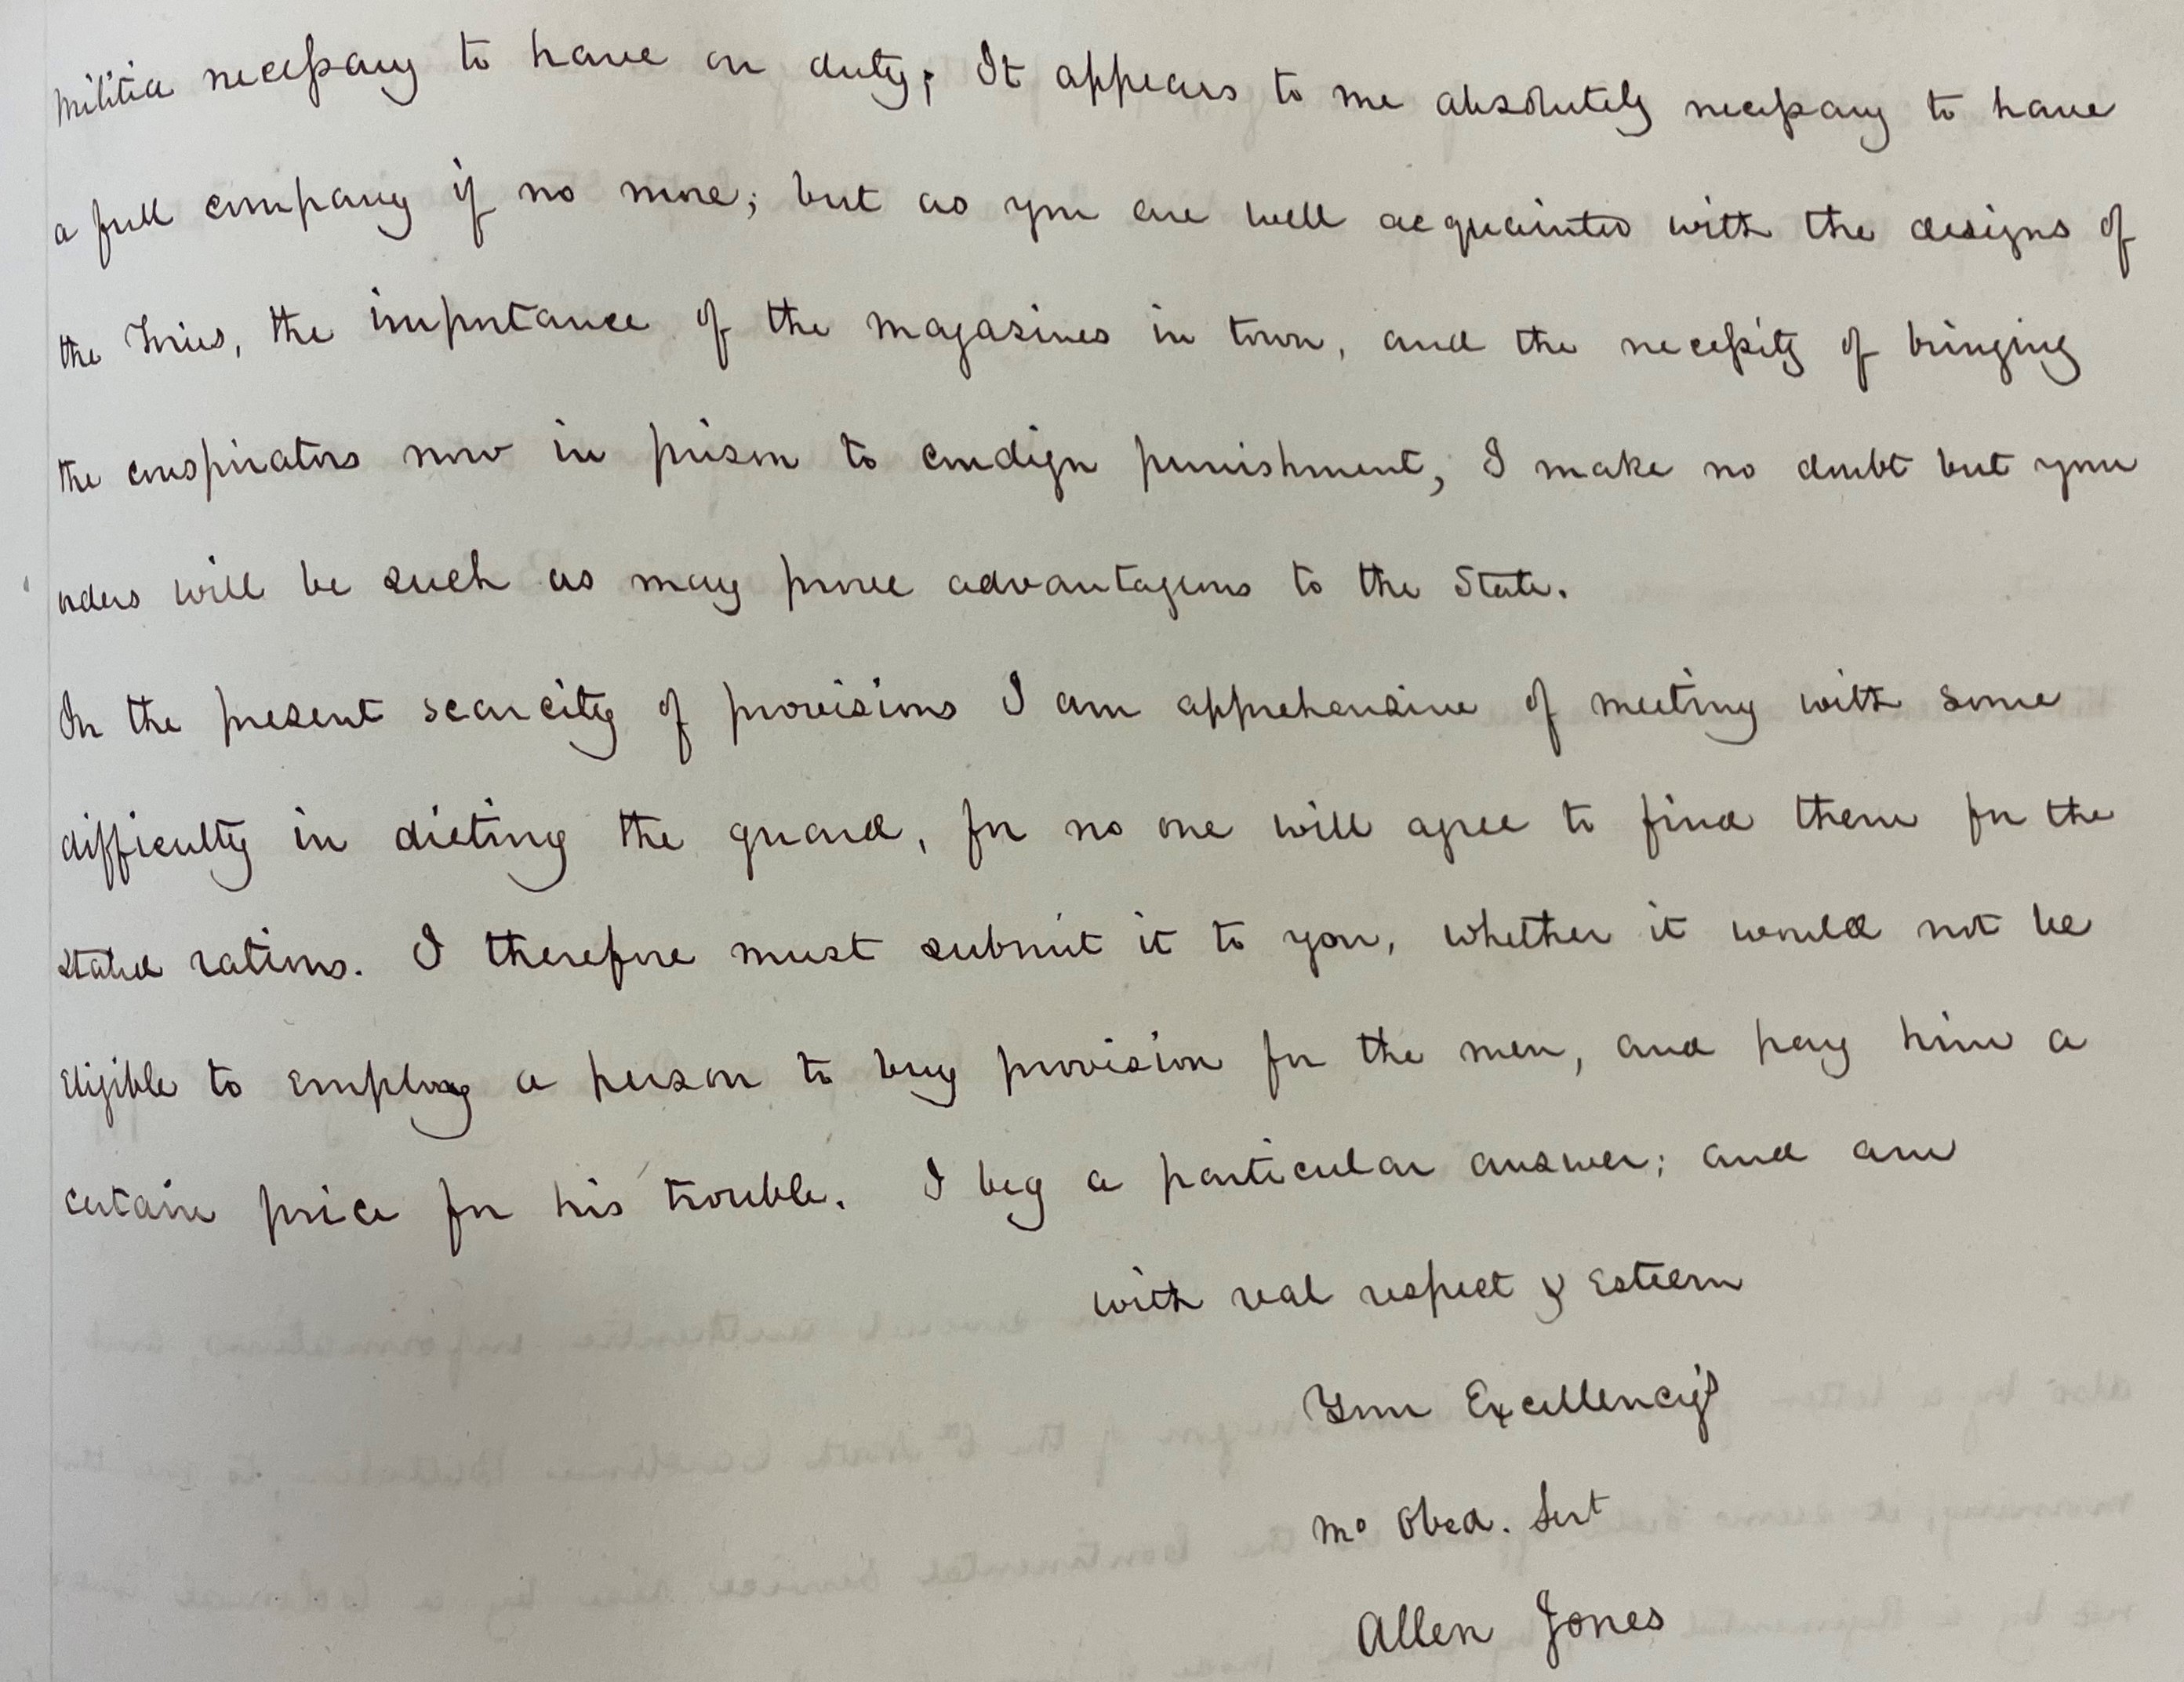 Militia necessary to have on duty; It appears to me absolutely necessary to have
a full company if no more; but as you are well acquainted with the designs of
the Tories, the importance of the magazines in town, and the necessity of bringing
the conspirators now in prison to condign punishment, I make no doubt but your
orders will be such as may prove advantageous to the State.
In the present scarcity of provisions I am apprehensive of meeting with some
difficulty in dieting the guard, for no one will agree to find them for the
stated rations. I therefore must submit it to you, whether it would not be
Eligible to employ a person to buy provision for the men, and pay him a
certain price for his trouble. I beg a particular answer; and am
with real respect & Esteem
Your Excellency's
Mo Obed. Servt
Allen Jones